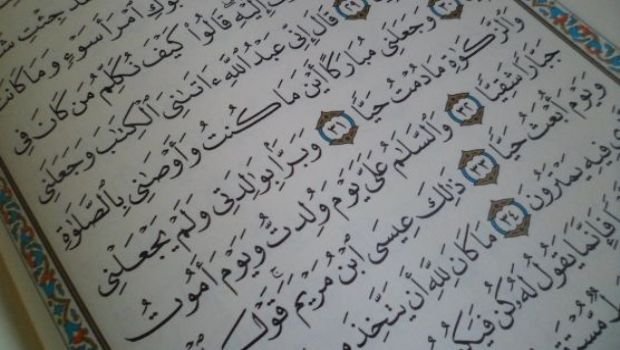 جِئْتِ
ٱمْرَأَ سَوْءٍ وَمَا كَانَتْ
إِلَيْهِ قَالُوا۟ كَيْفَ نُكَلِّمُ مَن كَانَ فِى
٢٩ قَالَ إِنِّى عَبْدُ ٱللَّهِ ءَاتَىٰنِىَ ٱلْكِتَٰبَ وَجَعَلَنِى
٣٠ وَجَعَلَنِى مُبَارَكًا أَيْنَ مَا كُنتُ وَأَوْصَٰنِى بِٱلصَّلَوٰةِ
وَٱلزَّكَوٰةِ مَا دُمْتُ حَيًّا ٣١ وَبَرًّۢا بِوَٰلِدَتِى وَلَمْ يَجْعَلْنِى
جَبَّارًا شَقِيًّا ٣٢ وَٱلسَّلَٰمُ عَلَىَّ يَوْمَ وُلِدتُّ وَيَوْمَ أَمُوتُ
وَيَوْمَ أُبْعَثُ حَيًّا ٣٣ ذَٰلِكَ عِيسَى ٱبْنُ مَرْيَمَ قَوْلَ
فِيهِ يَمْتَرُونَ ٣٤ مَا كَانَ لِلَّهِ أَن يَتَّخِذَ
فَإِنَّمَا يَقُولُ لَهُۥ كُن